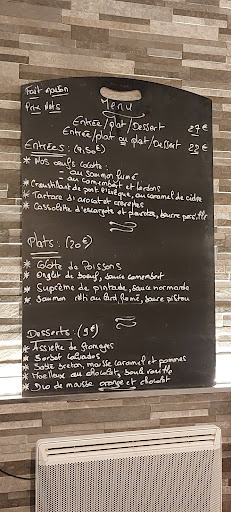 Fait maison
Prix Nets
Menu
Entrée/plat/Dessert 27€
Entrée/plat ou plat/Dessert 22€
Entrées: (9,50€)
* Nos oeufs cocotte:
- au saumon fumé
- au camembert et lardons
* Croustillant de pont l'évêque, au caramel de cidre
* Tartare d'avocat et crevettes
* Cassolette d'escargots et pleurotes, beurre persillé
Plats: (20€)
* de Poissons
* Onglet de boeuf, sauce camembert
* Suprême de pintade, sauce normande
* Saumon rôti au lard fumé, sauce pistou
Desserts: (9€)
* Assiette de fromages
* Sorbet calvados
* Sablé breton, mousse caramel et pommes
* Moelleux au chocolat, boule vanille
* Duo de mousse orange et chocolat